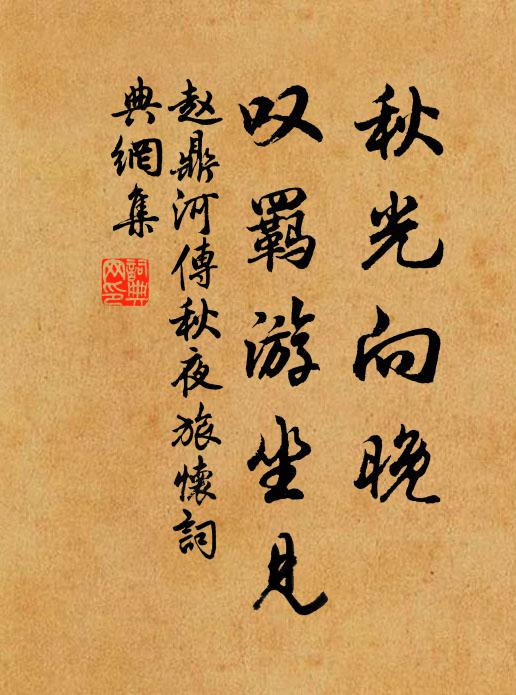 秋光向晚
叹羁游坐见
赵鼎河傳秋夜旅懷詞
典網集
詞典
网印